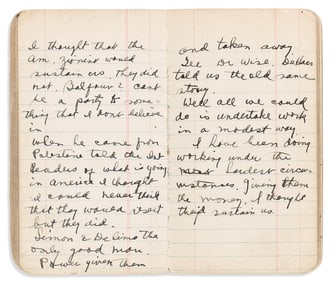 I thought that the
Am. Zionist would
sustain us. They did
not. Balfour & cant
be a party to some-
thing that I dont believe
in
when he came from
Palestine told the
leaders of what is going
in America I thought
I could never think
that they would
but they did.
Simon & Delima the
only good man.
Power given them
and taken away
See Dr Wise. DeHaas
told us the old same
story.
Well all we could
do is undertake work
in a modest way
I have been doing
working under the
most hardest circum
instances. Giving them
the money. I thought
they'd sustain us.